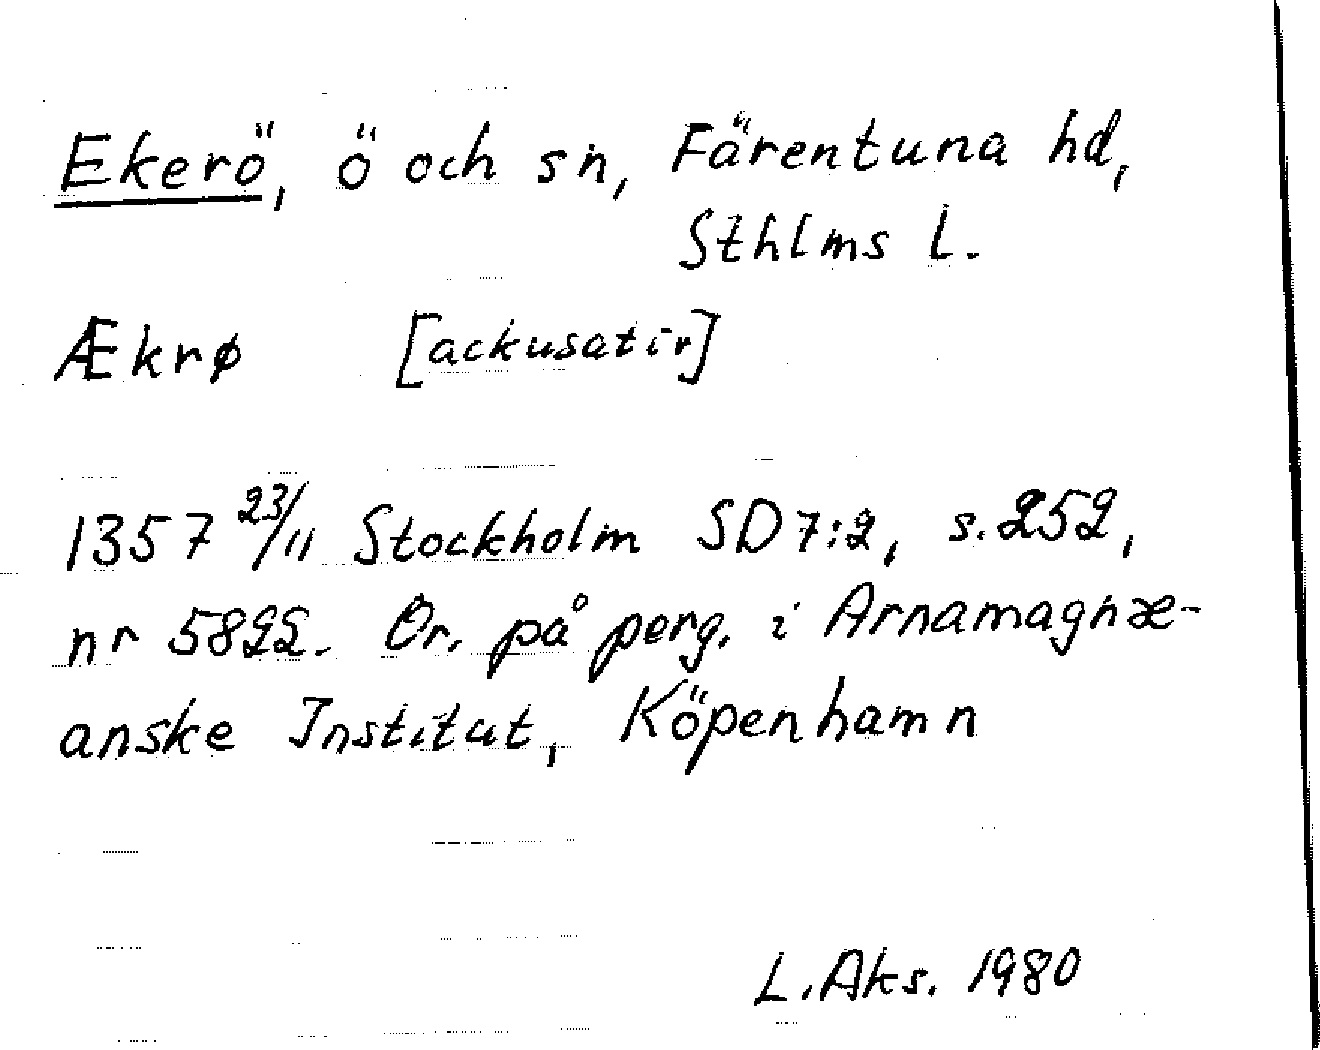 Ekerö, ö och sn, Färentuna hd,
Sthlms l.
Ækrø [ackusativ]
1357 23/11 Stockholm SD 7:2, s. 252,
nr 5822. Or. på perg. i Arnamagnæ-
anske Institut, Köpenhamn
L. Aks. 1980